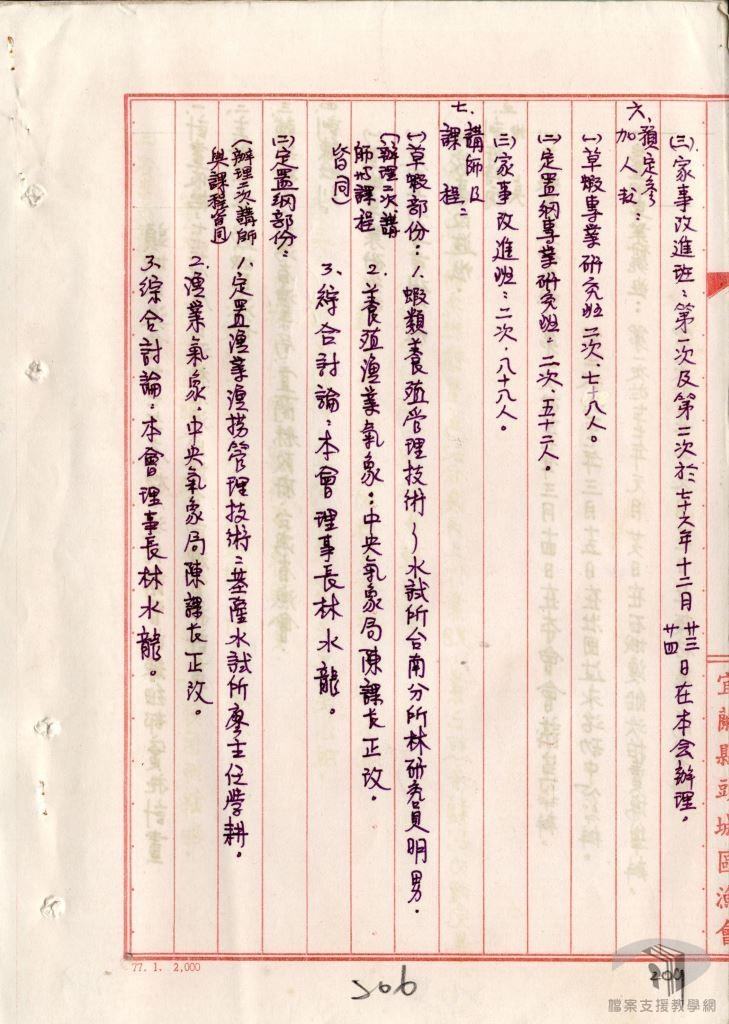 (三)家事改進班：第一次及第二次於七十六年十二月廿三廿四日在本会辦理。
六、預定參加人數：
(一)草蝦專業研究班二次、七十八人。
(二)定置網專業研究班：二次、五十二人。
(三)家事改進班：二次，八十八人。
七、講師及課程：
(一)草蝦部份：1.蝦類養殖管理技術～水試所台南分所林研究員明男.
(辦理二次講師與課程皆同)
2.養殖漁業氣象：中央氣象局陳課長正改。
3、綜合討論：本會理事長林水龍。
(二)定置網部份：
(辦理二次講師與課程皆同)
1.定置漁業漁撈管理技術：基隆水試所廖主任學耕。
2.漁業氣象.中央氣象局陳課長正改。
3.綜合討論：本會理事長林水龍。
宜蘭縣頭城區漁會
77. 1. 2,000
206
209
檔案支援教學網